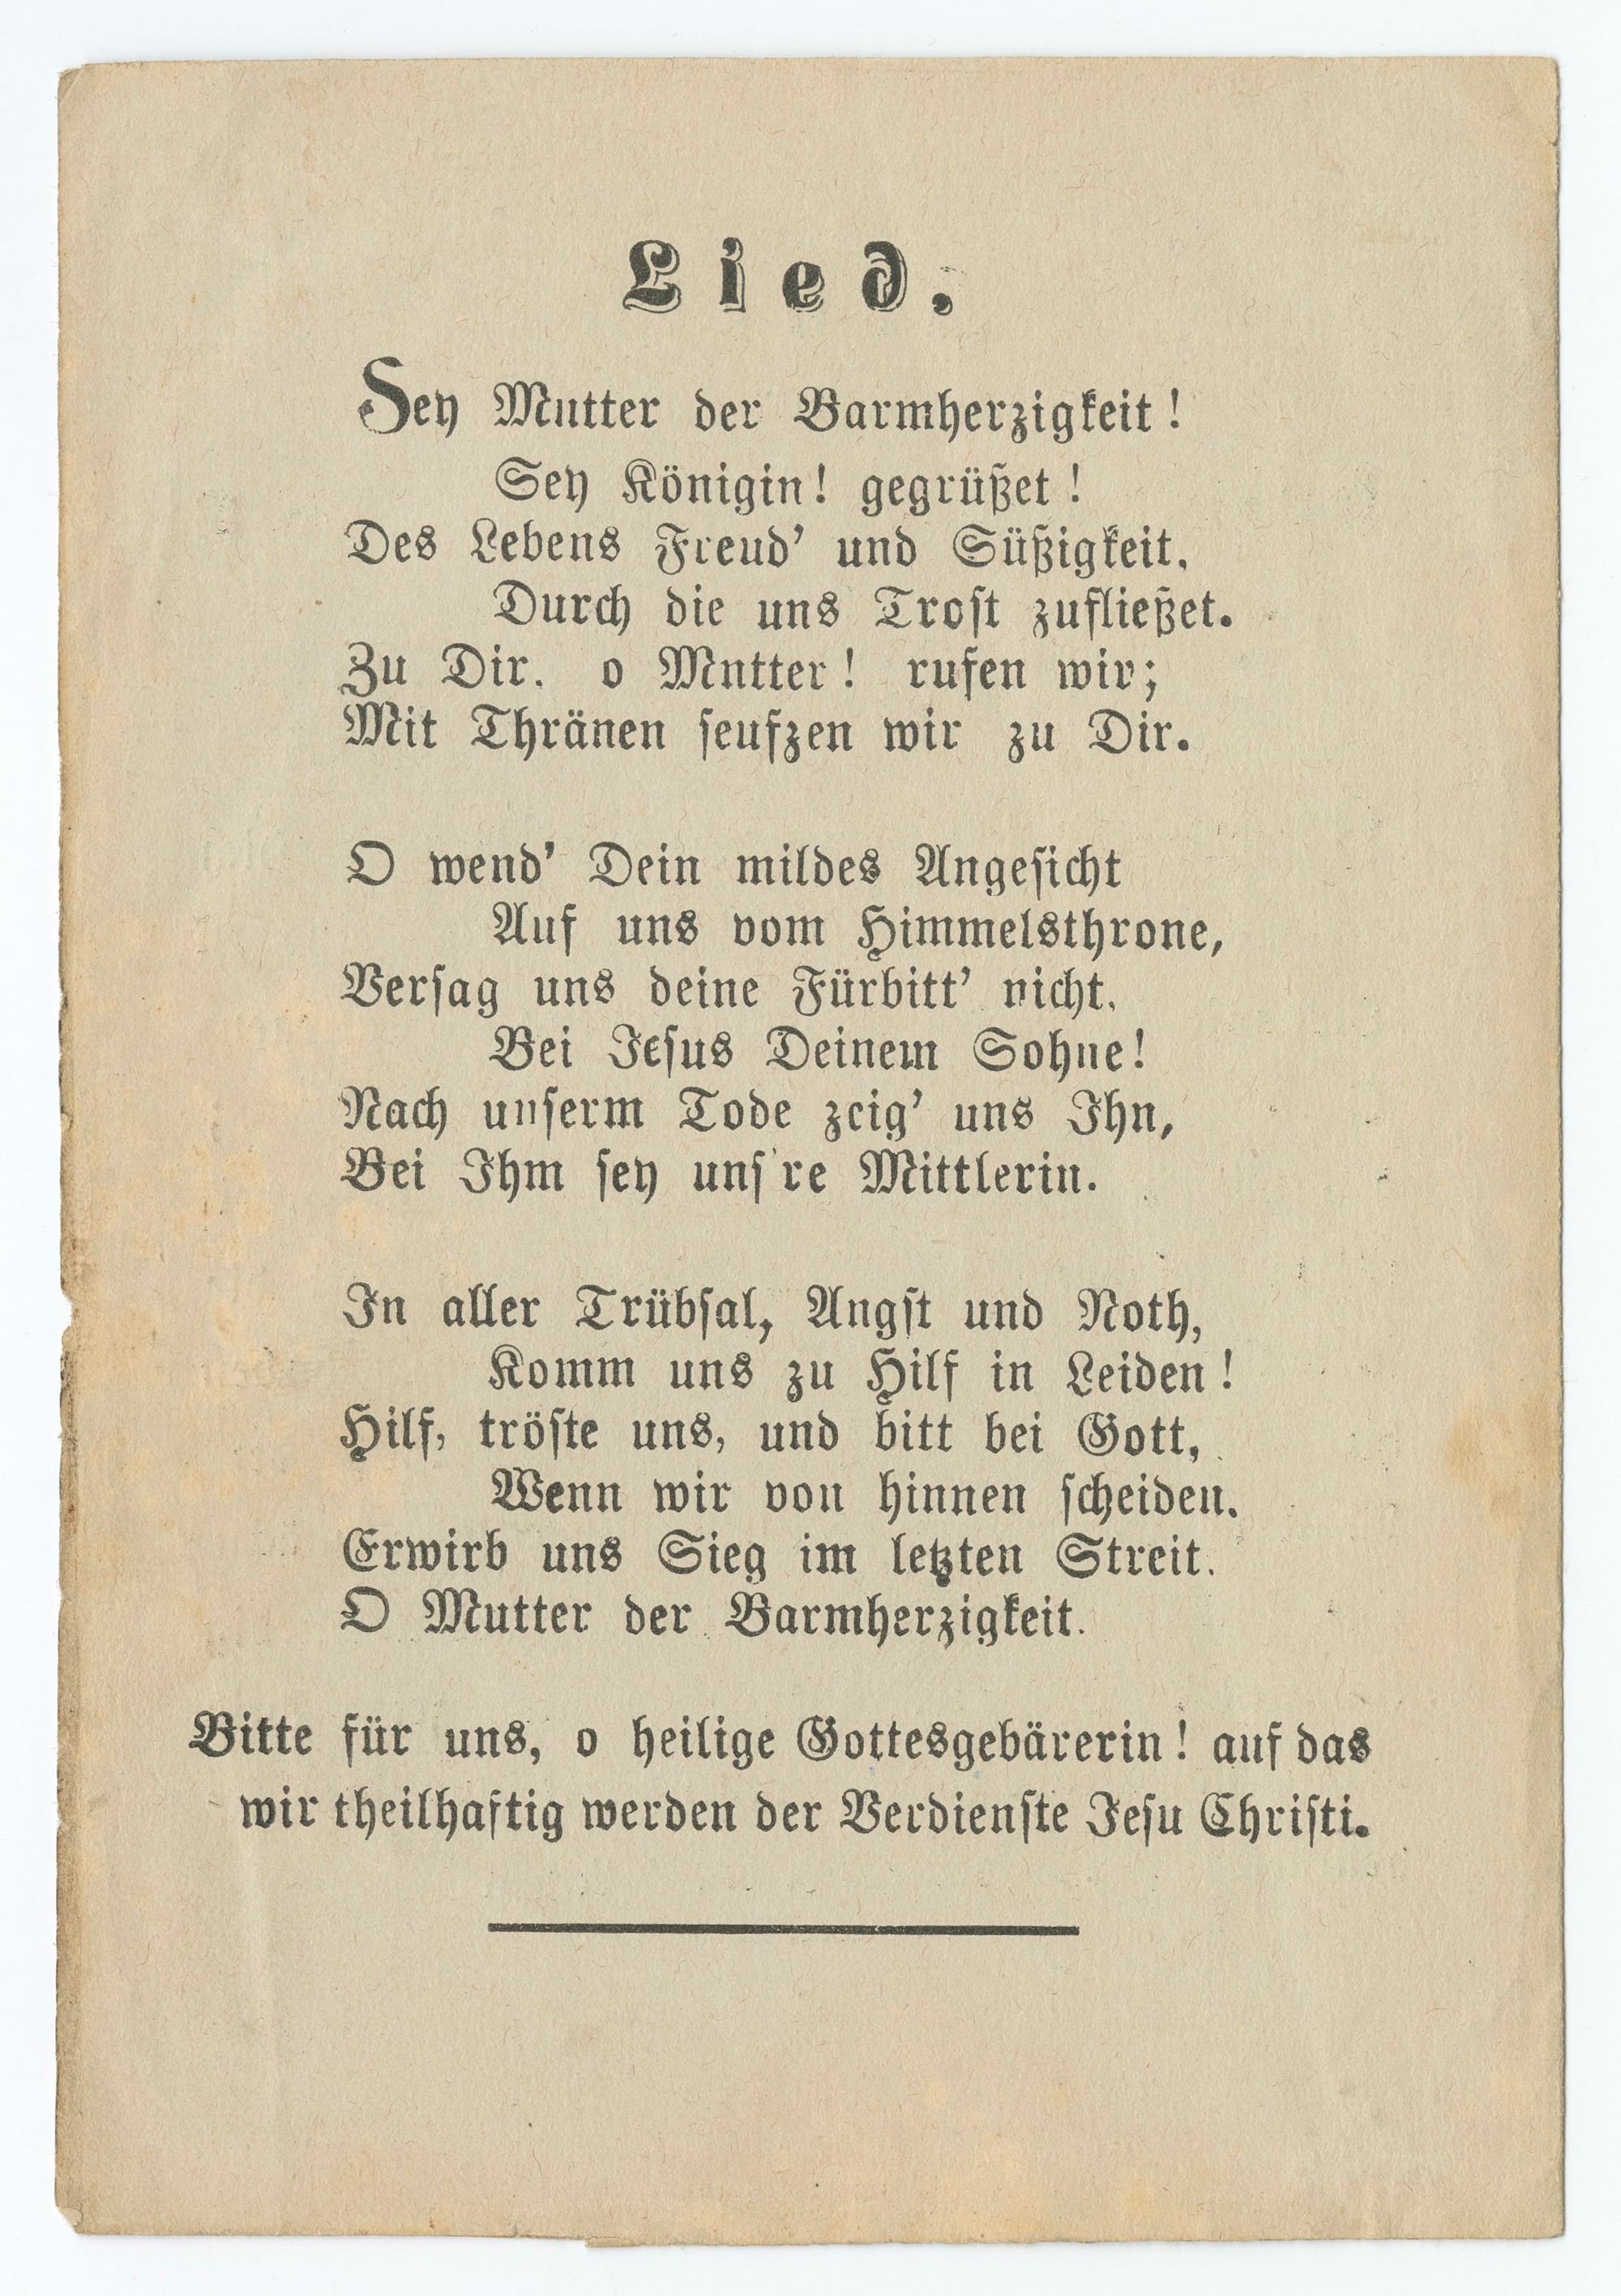 Lied.
Sey Mutter der Barmherzigkeit!
Sey Königin! gegrüßet!
Des Lebens Freud' und Süßigkeit,
Durch die uns Trost zufließet.
Zu Dir, o Mntter! rufen wir;
Mit Thränen seufzen wir zu Dir.
O wend' Dein mildes Angesicht
Auf uns vom Himmelsthrone,
Versag uns deine Fürbitt' nicht,
Bei Jesus Deinem Sohne!
Nach unserm Tode zeig' uns Ihn,
Bei Ihm sey uns're Mittlerin.
In aller Trübsal, Angst und Noth,
Komm uns zu Hilf in Leiden!
Hilf, tröste uns, und bitt bei Gott,
Wenn wir von hinnen scheiden.
Erwirb uns Sieg im letzten Streit.
O Mutter der Barmherzigkeit.
Bitte für uns, o heilige Gottesgebärerin! auf das
wir theilhaftig werden der Verdienste Jesu Christi.